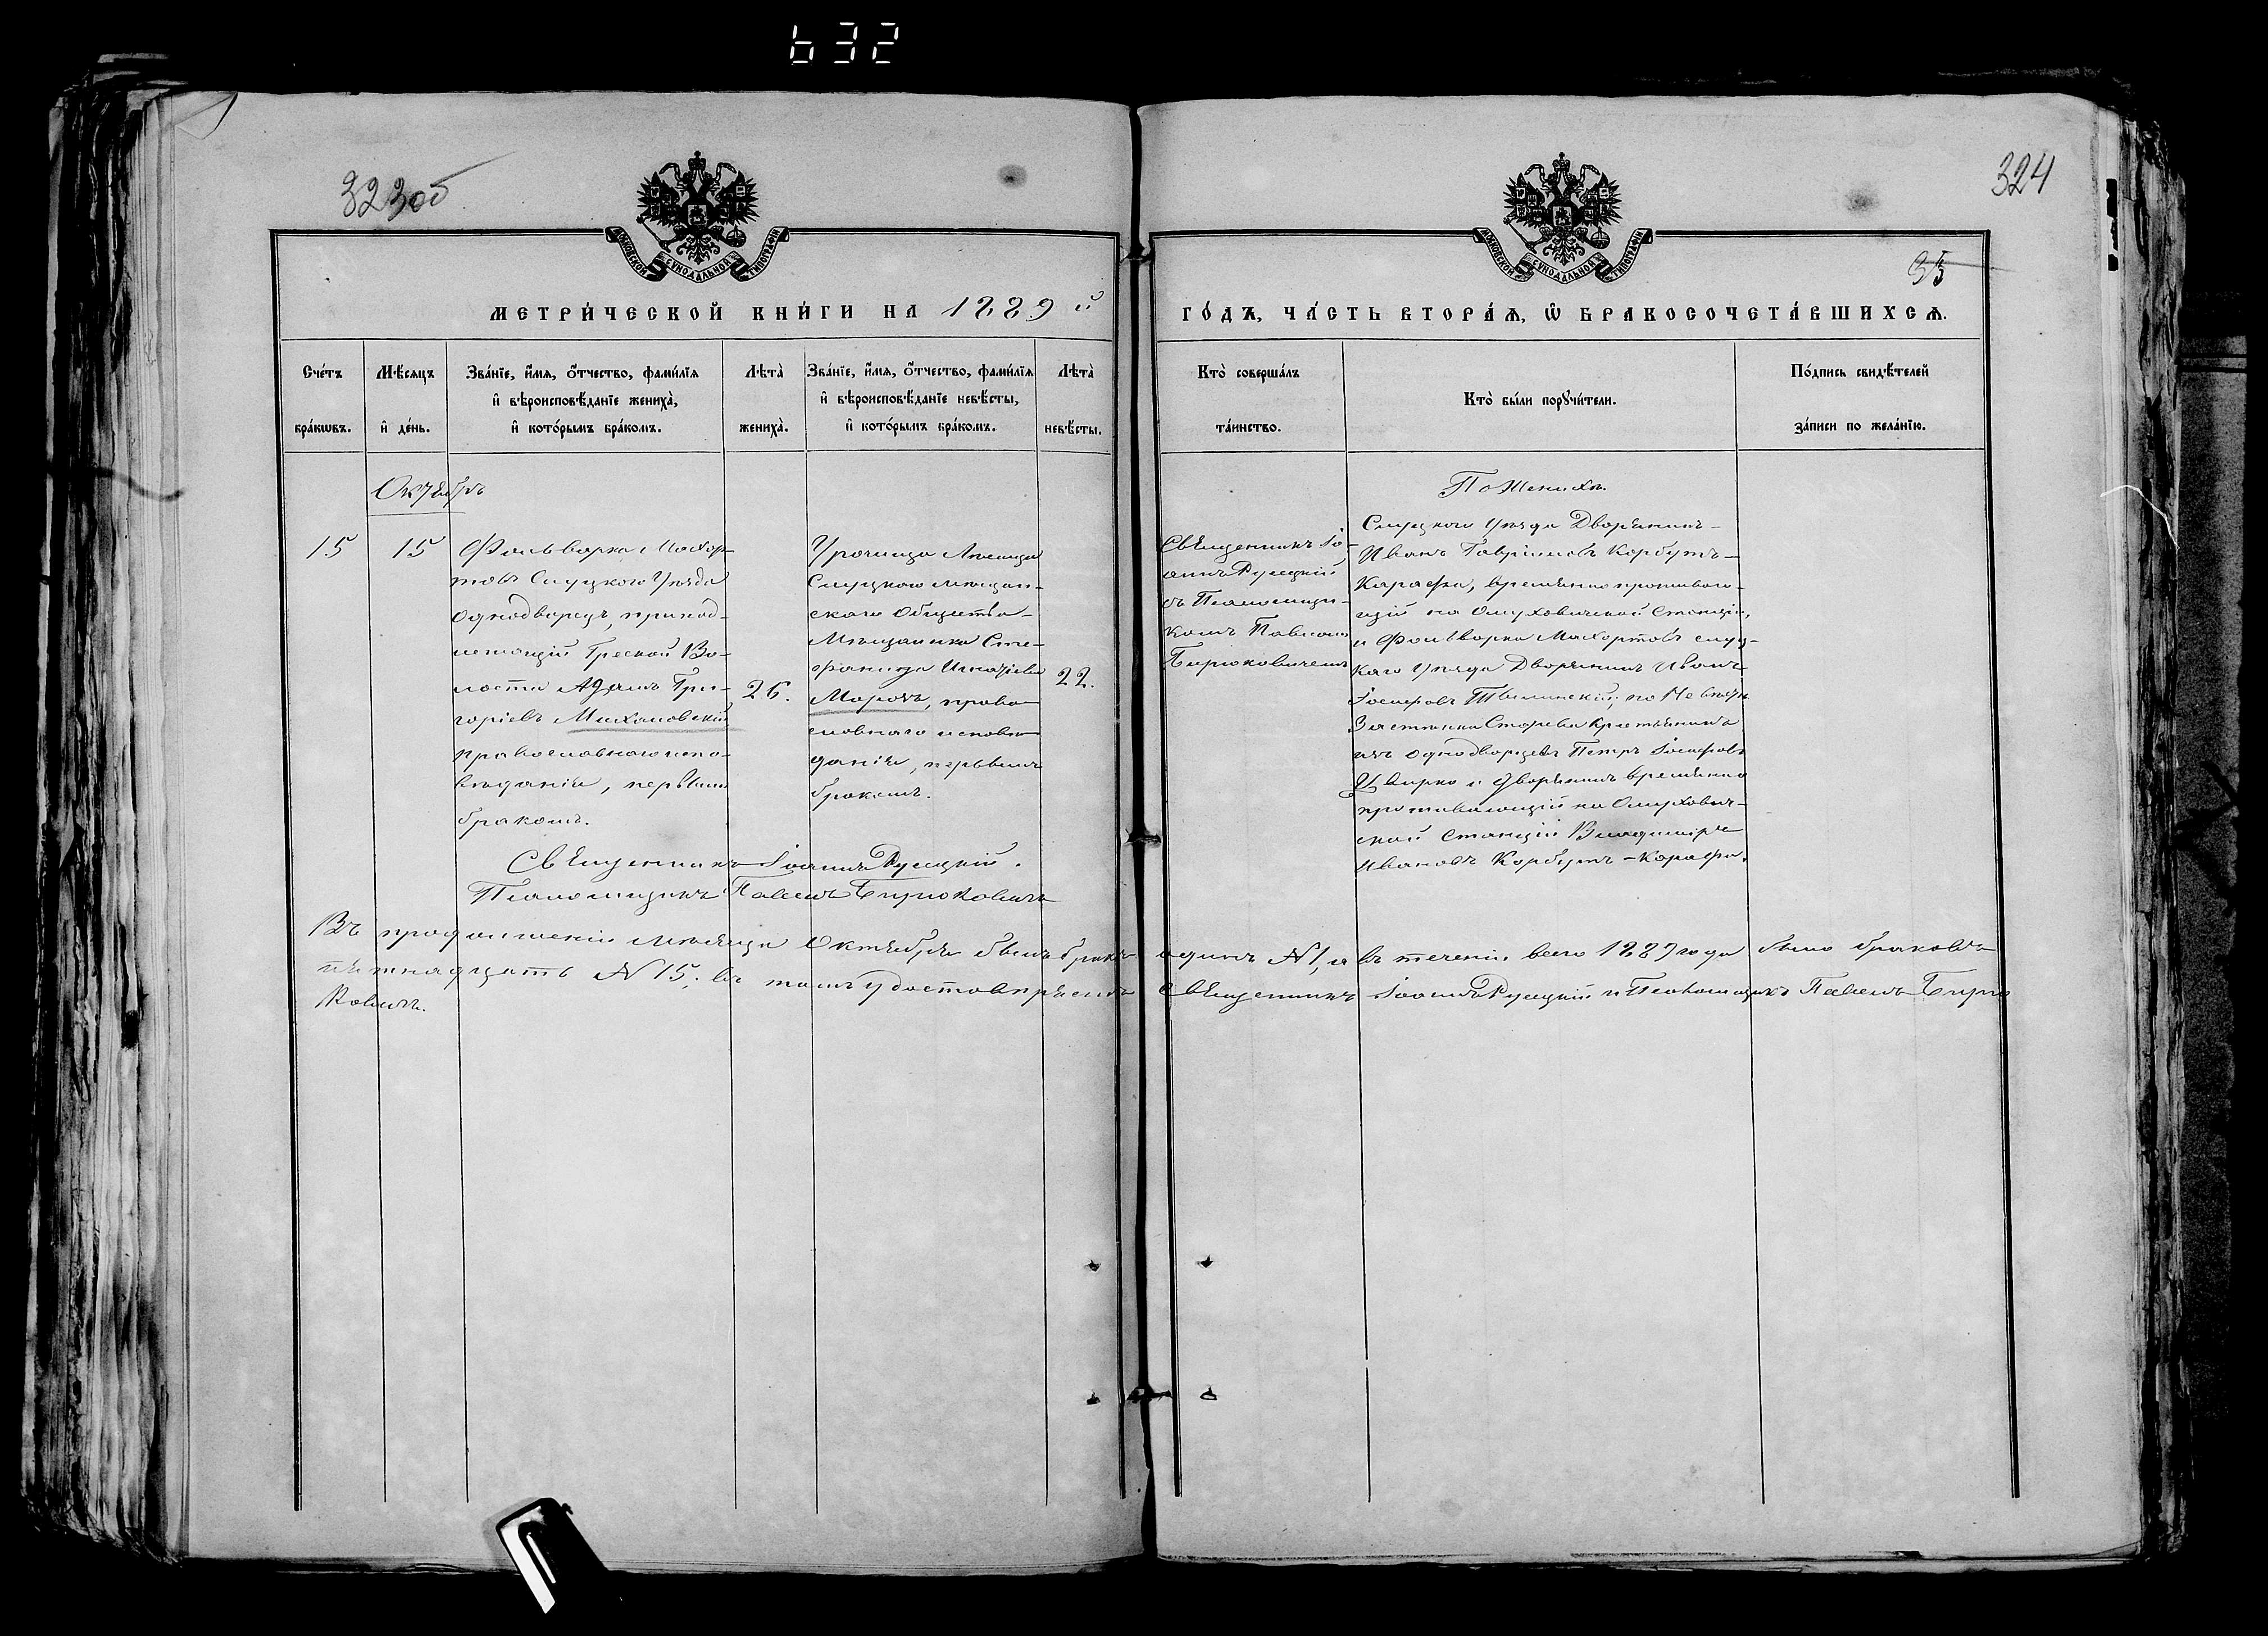 632
323об
324
МОСКОВСКОЙ СѴНОДАЛЬНОЙ ТИПОГРАФІИ
МОСКОВСКОЙ СѴНОДАЛЬНОЙ ТИПОГРАФІИ
35
МЕТРИ́ЧЕСКОЙ КНИ́ГИ НА 1889 й
ГО́ДЪ, ЧА́СТЬ ВТОРА́Ѧ, Ѽ БРАКОСОЧЕТА́ВШИХСѦ.
Сче́тъ
бра́кѡвъ.
Мѣ́сяцъ
и҆ де́нь.
Зва́нїе, и҆́мя, ѻ҆́тчество, фами́лїя
и҆ вѣроисповѣ́данїе жениха̀,
и҆ кото́рымъ бра́комъ.
Лѣта̀
жениха̀.
Зва́нїе, и҆́мя, ѻ҆́тчество, фами́лїя
и҆ вѣроисповѣ́данїе невѣ́сты,
и҆ кото́рымъ бра́комъ.
Лѣта̀
невѣ́сты.
Кто̀ соверша́лъ
та́инство.
Кто̀ бы́ли порꙋчи́тели.
По́дпись свидѣ́телей
за́писи по жела́нїю.
Октябрь
15
15
Фольварка Махор-
товъ Слуцкаго Уѣзда
однодворецъ, принад-
лежащій Греской Во-
лости Адамъ Гри-
горіевъ Михаловскій
православнаго испо-
вѣданія, первымъ
бракомъ.
26.
Урочища
Слуцкаго мѣщан-
скаго Общества
Мѣщанка Сте-
фанида Игнатіева
Морозъ, право-
славнаго исповѣ-
данія, первымъ
бракомъ.
22.
Священникъ Іо-
аннъ Рулецкій
съ Псаломщи-
комъ Павломъ
Бирюковичемъ
По Женихѣ.
Слуцкаго Уѣзда Дворянинъ
Иванъ Гавріиловъ Корбутъ-
Карафа, временно проживаю-
щій на Станціи,
и Фольварка Махортовъ слуц-
каго Уѣзда Дворянинъ Иванъ
Іосифовъ по Невѣстѣ
Застѣнка крестьянинъ
изъ однодворцевъ Петръ Іосифовъ
Цвирко и дворянинъ временно
проживающій на
ской Станціи Владиміръ
Ивановъ Корбутъ-Карафа.
Священникъ Іоаннъ Рулецкій.
Псаломщикъ Павелъ Бирюковичъ
Въ продолженіи мѣсяца Октября былъ бракъ одинъ N 1, а въ теченіи всего 1889 года было браковъ
пятнадцать N 15; въ томъ удостовѣряемъ Священникъ Іоаннъ Рулецкій и Псаломщикъ Павелъ Бирю
ковичъ.